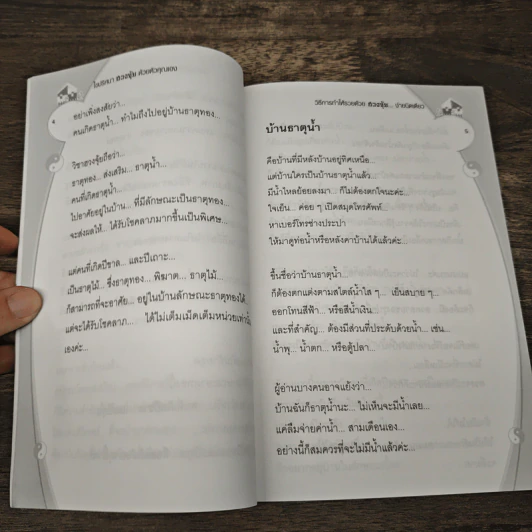 ไขปริศนา ฮวงจุ้ย ด้วยตัวคุณเอง
4
อย่าเพิ่งสงสัยว่า...
คนเกิดธาตุน้ำ... ทำไมถึงไปอยู่บ้านธาตุทอง...
วิชาฮวงจุ้ยถือว่า...
ธาตุทอง... ส่งเสริม... ธาตุน้ำ...
คนที่เกิดธาตุน้ำ...
ไปอาศัยอยู่ในบ้าน... ที่มีลักษณะเป็นธาตุทอง...
จะส่งผลให้... ได้รับโชคลาภมากขึ้นเป็นพิเศษ...
แต่คนที่เกิดปีขาล... และปีเถาะ...
เป็นธาตุไม้... ซึ่งธาตุทอง... พิฆาต... ธาตุไม้...
ก็สามารถที่จะอาศัย... อยู่ในบ้านลักษณะธาตุทองได้
แต่จะได้รับโชคลาภ... ได้ไม่เต็มเม็ดเต็มหน่วยเท่านั้น
เองค่ะ...
วิธีการทำให้รวยด้วย ฮวงจุ้ย... ง่ายนิดเดียว
5
บ้านธาตุน้ำ
คือบ้านที่มีหลังบ้านอยู่ทิศเหนือ...
แต่บ้านใครเป็นบ้านธาตุน้ำแล้ว...
มีน้ำไหลย้อยลงมา... ก็ไม่ต้องตกใจนะคะ...
ใจเย็น... ค่อย ๆ เปิดสมุดโทรศัพท์...
หาเบอร์โทรช่างประปา
ให้มาดูท่อน้ำหรือหลังคาบ้านได้แล้วค่ะ...
ขึ้นชื่อว่าบ้านธาตุน้ำ...
ก็ต้องตกแต่งตามสไตล์น้ำใส ๆ... เย็นสบาย ๆ...
ออกโทนสีฟ้า... หรือสีน้ำเงิน...
และที่สำคัญ... ต้องมีส่วนที่ประดับด้วยน้ำ... เช่น...
น้ำพุ... น้ำตก... หรือตู้ปลา...
ผู้อ่านบางคนอาจแย้งว่า...
บ้านฉันก็ธาตุน้ำนะ... ไม่เห็นจะมีน้ำเลย...
แค่ลืมจ่ายค่าน้ำ... สามเดือนเอง...
อย่างนี้ก็สมควรที่จะไม่มีน้ำแล้วค่ะ...